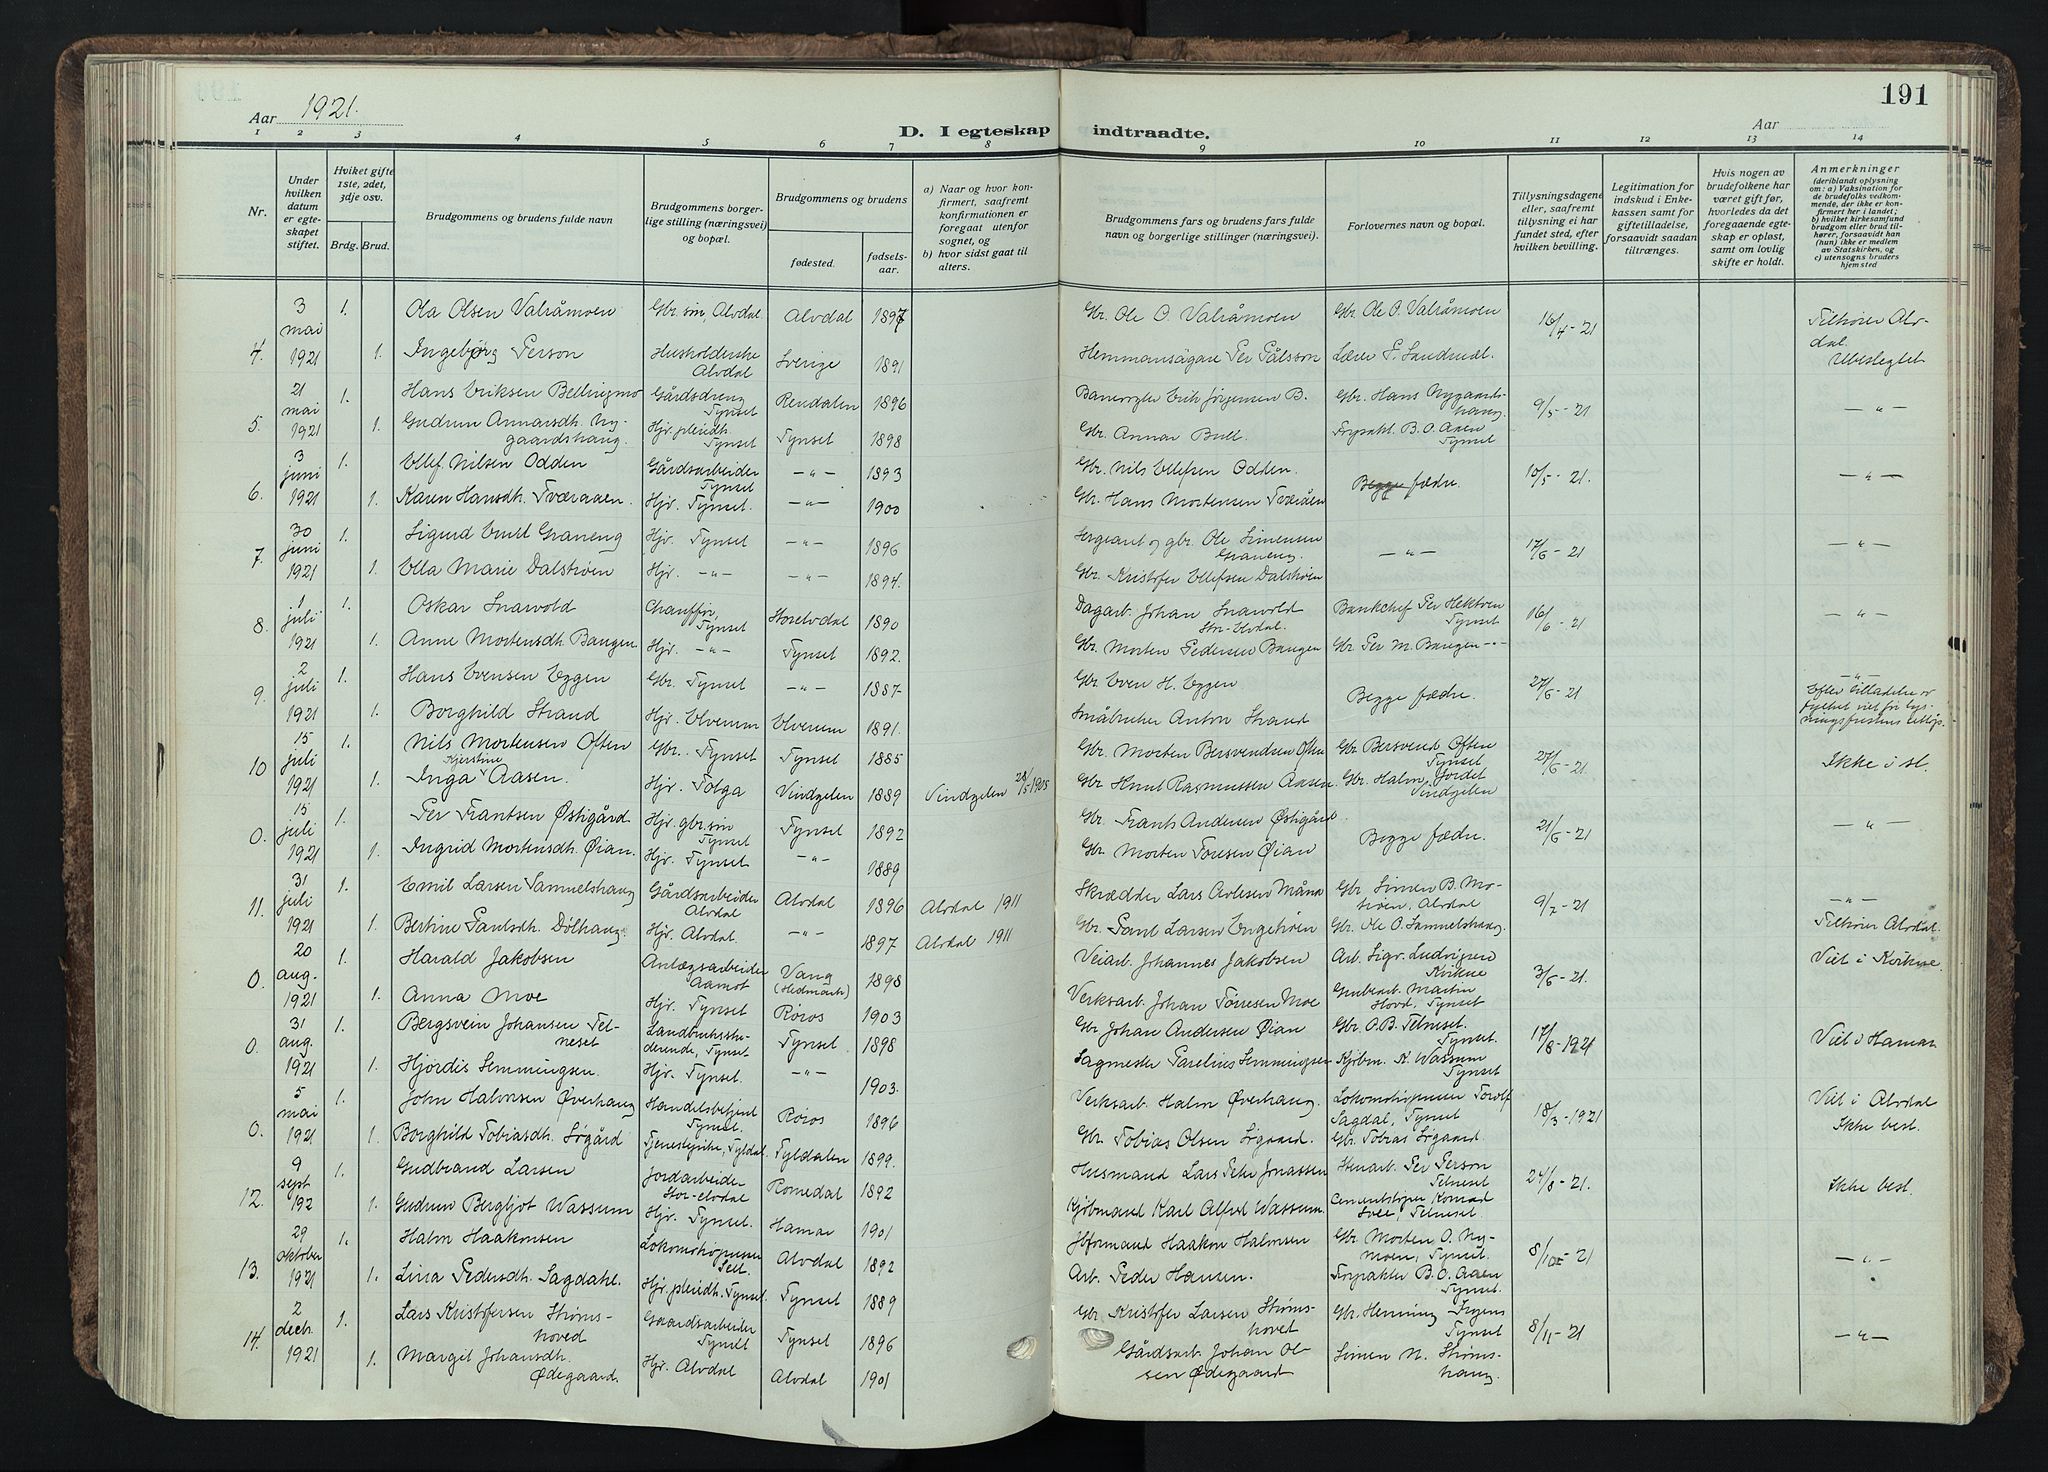 191
Aar 1921.
Aar
D. I egteskap indtraadte.
1 2 3 4 5 6 7 8 9 10 11 12 13 14
Nr.
Under hvilken datum er egteskapet stiftet.
Hviket gifte 1ste, 2det, 3dje osv.
Brdg. Brud.
Brudgommens og brudens fulde navn
Brudgommens borgerlige stilling (næringsvei) og bopæl.
Brudgommens og brudens
fødested.
fødselsaar.
a) Naar og hvor konfirmert, saafremt konfirmationen er foregaat utenfor sognet, og
b) hvor sidst gaat til alters.
Brudgommens fars og brudens fars fulde navn og borgerlige stillinger (næringsvei).
Forlovernes navn og bopæl.
Tillysningsdagene eller, saafremt tillysning ei har fundet sted, efter hvilken bevilling.
Legitimation for indskud i Enkekassen samt for giftetilladelse, forsaavidt saadan tiltrænges.
Hvis nogen av brudefolkene har været gift før, hvorledes da det foregaaende egteskap er opløst, samt om lovlig skifte er holdt.
Anmerkninger
(deriblandt oplysning om: a) Vaksination for de brudefolks vedkommende, der ikke er konfirmert her i landet; b) hvilket kirkesamfund brudgom eller brud tilhører, forsaavidt han (hun) ikke er medlem av Statskirken, og c) utensogns bruders hjemsted
4. 3 mai 1921 1. Ola Olsen Valråmoen Gbr. søn, Alvdal Alvdal 1897 Gbr. Ole O. Valråmoen Gbr. Ole O. Valråmoen 16/4-21 Tilhører Alvdal. Ubeslegtet
1. Ingebørg Person Husholderske Alvdal Sverige 1891 Hemmansägare Per Pålsson Lærer
5. 21 mai 1921 1. Hans Eriksen Bellingmo Gårdsdreng Tynset Rendalen 1896 Banevogter Erik Jørgensen B. Gbr. Hans Nygaardshaug 9/5-21 -"-
1. Gudrun Annarsdh. Nygaardshaug. Hjr. pleiedh. Tynset Tynset 1898 Gbr. Annar Bull. B. O. Aaen Tynset
6. 3 juni 1921 1. Ellef Nilsen Odden Gårdsarbeider Tynset -"- 1893 Gbr. Nils Ellefsen Odden. Begge fædre. 10/5-21. -"-
1. Karen Hansdh. Tværaaen. Hjr. Tynset. -"- 1900 Gbr. Hans Mortensen Tværåen
7. 30 juni 1921 1. Sigurd Emil Graneng Hjr. Tynset -"- 1896 Sergeant og gbr. Ole Simensen Graneng. -"- 17/6-21 -"-
1. Ella Marie Dalstrøen Hjr. -"- -"- 1894. Gbr. Kristofer Ellefsen Dalstrøen
8. 1 juli 1921 1. Oskar Snarvold Chauffør, Tynset Storelvdal 1890 Dagarb. Johan Snarvold Stor-Elvdal. Bankchef Per Hektoen Tynset 16/6-21 -"-
1. Anne Mortensdh. Bangen Hjr. -"- Tynset 1892. Gbr. Morten Pedersen Bangen Gbr. Per M. Bangen -"-
9. 2 juli 1921 1. Hans Evensen Eggen Gbr. Tynset -"- 1887. Gbr. Even H. Eggen Begge fædre. 27/6-21 -"-
1. Borghild Strand Hjr. Elverum Elverum 1891. Småbruker Anton Strand
10 15 juli 1921 1. Nils Mortensen Often Gbr. Tynset Tynset 1885 Gbr. Morten Bersvendsen Often Gbr. Bersvend Often Tynset 27/6-21. Ikke i sl.
1. Inga Kjerstine Aasen. Hjr. Tolga Vindgelen 1889 Vindgelen 28/5 1905 Gbr. Knut Rasmussen Aasen Gbr. Halm. Jordet Vindgelen
0. 15 juli 1921 1. Per Frantsen Østigård Hjr. gbr. søn Tynset Tynset 1892 Gbr. Frants Andersen Østigård Begge fædre. 21/6-21 -"-
1. Ingrid Mortensdh. Øian. Hjr. Tynset -"- 1889 Gbr. Morten Toresen Øian
11. 31 juli 1921 1. Emil Larsen Samuelshaug Gårdsarbeider Alvdal Alvdal 1896 Alvdal 1911 Skrædder Lars Gbr. Simen B. Mostrøen, Alvdal 9/7-21 -"- Tilhører Alvdal.
1. Bertine Paulsdh. Dølhaug. Hjr. Alvdal. -"- 1897 Alvdal 1911 Gbr. Paul Larsen Engehøen Gbr. Ole O. Samuelshaug.
0. 20 aug. 1921 1. Harald Jakobsen Anlægsarbeider Aamot Vang (Hedmark) 1898 Veiarb. Johannes Jakobsen Arb. Sigr. Ludvigsen Kvikne 3/6-21. Viet i Kvikne.
1. Anna Moe Hjr. Tynset Røros 1903 Verksarb. Johan Tørresen Moe Grubearb. Martin Hovd, Tynset
0. 31 aug. 1921 1. Bergsvein Johansen Telneset Landbruksstuderende, Tynset Tynset 1898 Gbr. Johan Andersen Øian Gbr. O. B. Telneset. Tynset. 17/8-1921 Viet i Hamar
1. Hjørdis Semmingsen. Hjr. Tynset. -"- 1903. Sagmester Parelius Semmingsen Kjøbm. K. Wassum Tynset
0. 5 mai 1921 1. John Halvorsen Øverhaug Handelsbetjent Tynset. Røros 1896 Verksarb. Halvor Øverhaug. Lokomotivpusser Torolf Sagdal, Tynset 18/3-1921 Viet i Alvdal Ikke besl.
1. Borghild Tobiasdh. Søgård Tjenestepike, Tyldal. Tyldalen 1899. Gbr. Tobias Olsen Søgaard. Gbr. Tobias Søgaard.
12. 9 sept 192 1. Gudbrand Larsen Jordarbeider Stor-Elvdal Romedal 1892 Husmand Lars Peter Jonassen Stenarb. Per Person Telneset 24/8-21. Ikke besl.
1. Gudrun Bergljot Wassum Hjr. Tynset. Hamar 1901 Kjøbmand Karl Alfred Wassum. Cementstøper Konrad Telneset.
13. 29 oktober 1921 1. Halvor Haakonsen Lokomotivpusser Alvdal 1892 Haakon Halvorsen Gbr. Morten O. Nymoen, Tynset. 8/10-21 -"-
1. Lina Pedersdh. Sagdahl. Hjr. pleiedh. Tynset. Tynset 1889 Arb. Peder Hansen. B. O. Aaen Tynset.
14. 2 decbr. 1921 1. Lars Kristofersen Strømshoved Gaardsarbeider Tynset Tynset 1896 Gbr. Kristofer Larsen Strømshovet Gbr. Henning Tynset 8/11-21 -"-
1. Margit Johansdh. Ødegaard. Hjr. Alvdal Alvdal 1901 Gårdsarb. Johan Olsen Ødegaard Simen N. Strømshaug.